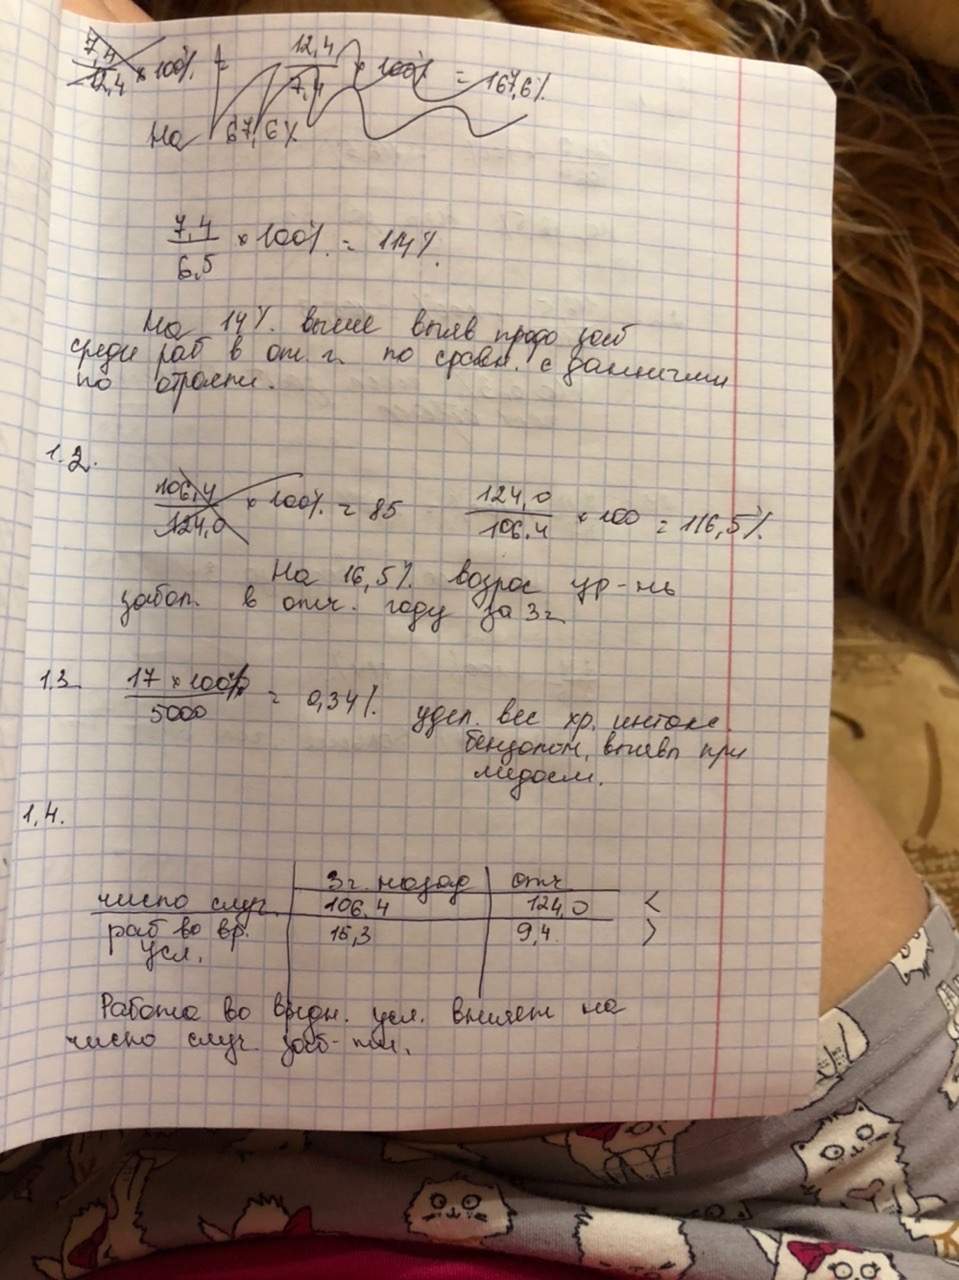 7,4 / 12,4 × 100% = 12,4 / 7,4 × 100% = 167,6%
На 67,6%
7,4 / 6,5 × 100% = 114%.
На 14% выше выяв проф заб
среди раб в отч. г. по сравн. с данными
по отрасли.
1.2.
106,4 / 124,0 × 100% = 85 124,0 / 106.4 × 100 = 116,5%.
На 16,5% возрос ур-нь
забол. в отч. году за 3 г
1.3. 17 × 100% / 5000 = 0,34%. удел. вес хр. интокс.
бензолом, выявл при
медосм.
1.4.
3 г. назад отч
число случ. 106.4 124,0 <
раб во вр. 15,3 9,4 >
усл.
Работа во вредн. усл. влияет на
число случ. заб-тии.